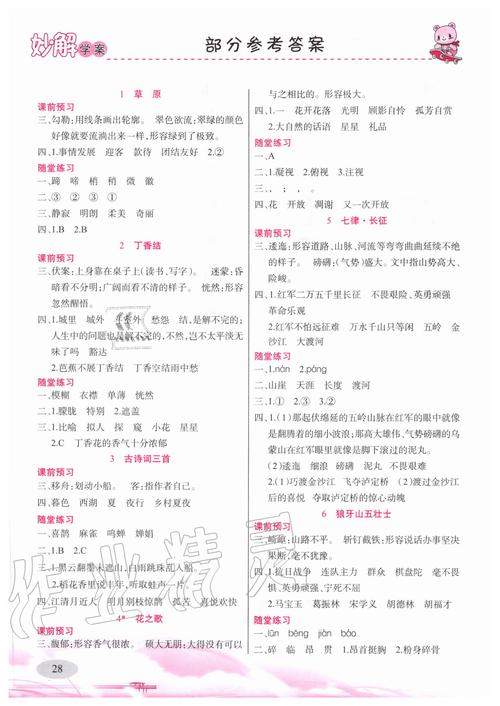 妙解学案
部分参考答案
1 草 原
课前预习
三、勾勒:用线条画出轮廓。 翠色欲流:翠绿的颜色
好像就要流淌出来一样,形容绿到了极致。
四、1.事情发展 迎客 款待 团结友好 2.②
随堂练习
一、蹄 啼 梢 稍 微 徽
二、③ ① ③ ①
三、静寂 明朗 柔美 奇丽
四、1.B 2.B
2 丁香结
课前预习
三、伏案:上身靠在桌子上(读书、写字)。 迷蒙:昏
暗看不分明;优闹看不清的样子。 恍然:形容
忽然醒悟。
四、1.城里 城外 斗室外 愁怨 结,是解不完的;
人生中的问题也是解不完的,不然,岂不太平淡无
味了吗 豁达
2.芭蕉不展丁香结 丁香空结雨中愁
随堂练习
一、模糊 衣襟 单薄 恍然
二、1.朦胧 特别 2.遮盖
三、1.比喻 拟人 星星 雪花
2.C 丁香花的香气十分浓郁
3 古诗词三首
课前预习
三、移舟:划动小船。 客:指作者自己。
四、暮色 西湖 夏 夜行 乡村夏夜
随堂练习
一、喜鹊 麻雀 鸣蝉 蝉鸣
二、1.B 2.C
三、1.黑云翻墨未遮山,白雨跳珠乱入船
2.稻花香里说丰年,听取蛙声一片。
四、江清月近人 明月别枝惊鹊 孤苦 喜悦欢快
4* 花之歌
课前预习
三、馥郁:形容香气很浓。 硕大无朋:大得没有可以
与之相比的。形容极大。
四、1.一 花开花落 光明 顾影自怜 孤芳自赏
2.大自然的话语 星星 礼品
随堂练习
一、A
二、1.凝视 2.俯视 3.注视
四、花 开放 凋谢 又一次开放
5 七律·长征
课前预习
三、逶迤:形容道路、山脉、河流等弯弯曲曲延续不绝
的样子。 磅礴:(气势)盛大。 崎岖:形容高大、
险峻。
四、1.红军二万五千里长征 不畏艰险、英勇顽强
革命乐观
2.红军不怕远征难 万水千山只等闲 五岭 金
沙江 大渡河
随堂练习
一、1.nán 2.páng
二、山崖 天涯 横渡 渡河
三、1.① 2.③ 3.②
四、1.(1)那起伏绵延的五岭山脉在红军的眼中就像
是翻腾着的细小波浪,那高大雄伟、气势磅礴的乌
蒙山在红军眼里就像是脚下滚过的泥丸。
(2)逶迤 细浪 磅礴 泥丸
2.(1)巧渡金沙江 飞夺泸定桥 (2)渡过金沙江
后的喜悦 夺取泸定桥的惊心动魄
6 狼牙山五壮士
课前预习
三、崎岖:山路不平。 斩钉截铁:形容说话办事坚决
果断,毫不犹豫。
四、1.抗日战争 连队主力 群众 棋盘陀 不畏
牺牲、英勇顽强 宁死不屈
2.马宝玉 葛振林 宋学义 胡德林 胡福才
随堂练习
一、lūn bēng yuè
二、碎 临 昂 贯 1.昂首挺胸 2.粉身碎骨
28
作业精灵